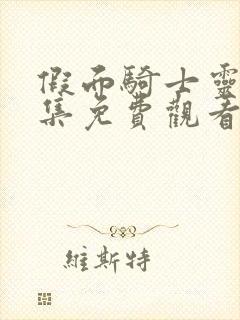 假面騎士靈
集免費觀看
維斯特